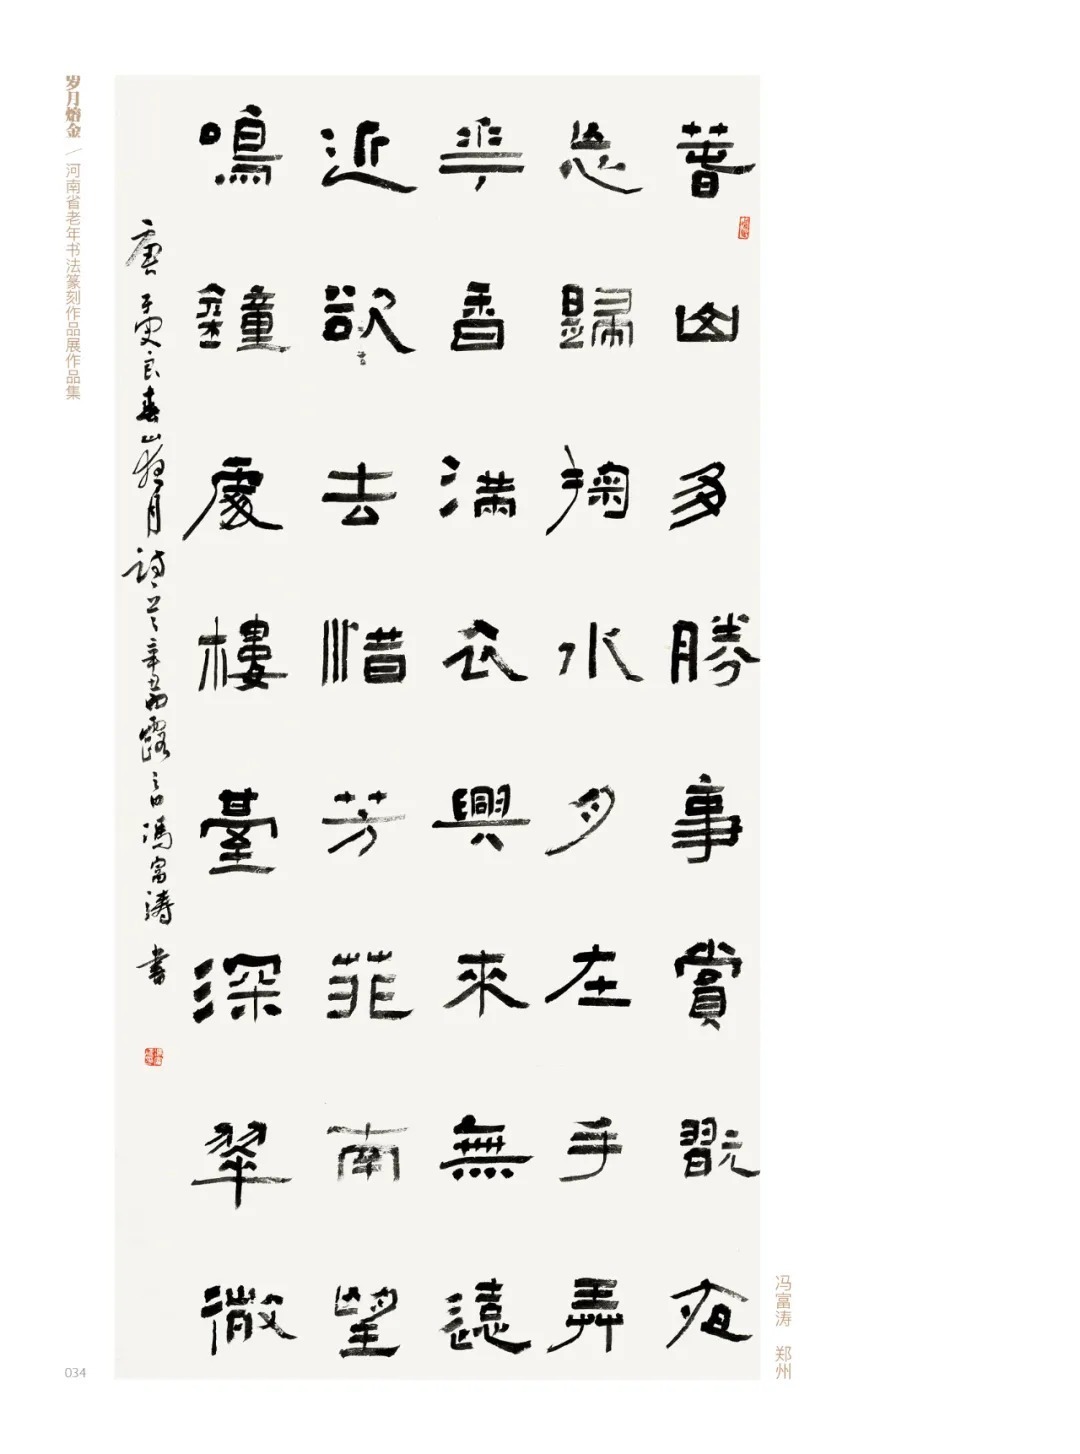 岁月熔金 / 河南省老年书法篆刻作品展作品集
萅山多勝事賞翫夜
忘歸掬水月在手弄
華香滿衣興來無遠
近欲去惜芳菲南望
鳴鐘處樓臺深翠微
唐于史良春山夜月詩辛丑露馮富濤書
冯富涛 郑州
034